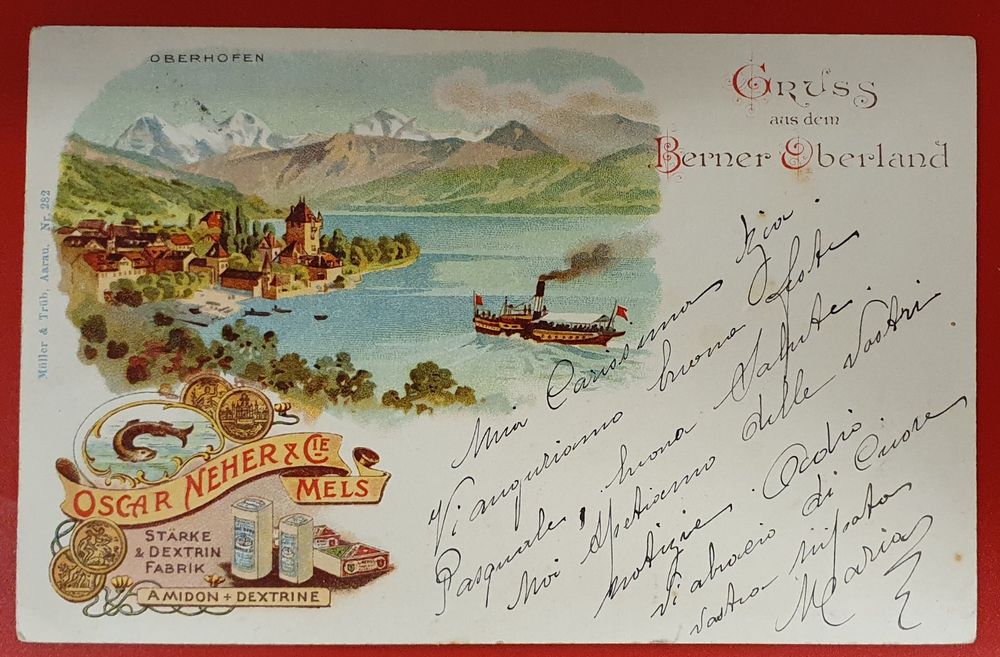 OBERHOFEN
Gruss
aus dem
Berner Oberland
Müller & Trüb, Aarau. Nr. 282
OSCAR NEHER & CIE
MELS
STÄRKE
& DEXTRIN
FABRIK
AMIDON + DEXTRINE
Mia Carissima Zia.
Vi auguriamo buone Feste
Pasquale, buona Salute.
Noi Aspetiamo delle Vostri
notizie. Adio.
Vi abracio di Cuore
vostra nipota
Maria